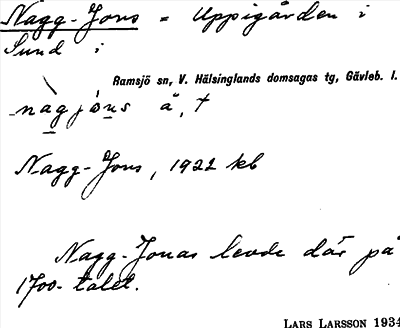 Nagg-Jons = Uppigården i
Sund i
Ramsjö sn, V. Hälsinglands domsagas tg, Gävleb. l.
nàgjòns å, †
Nagg-Jons, 1922 kb
Nagg-Jonas levde där på
1700-talet.
LARS LARSSON 1934